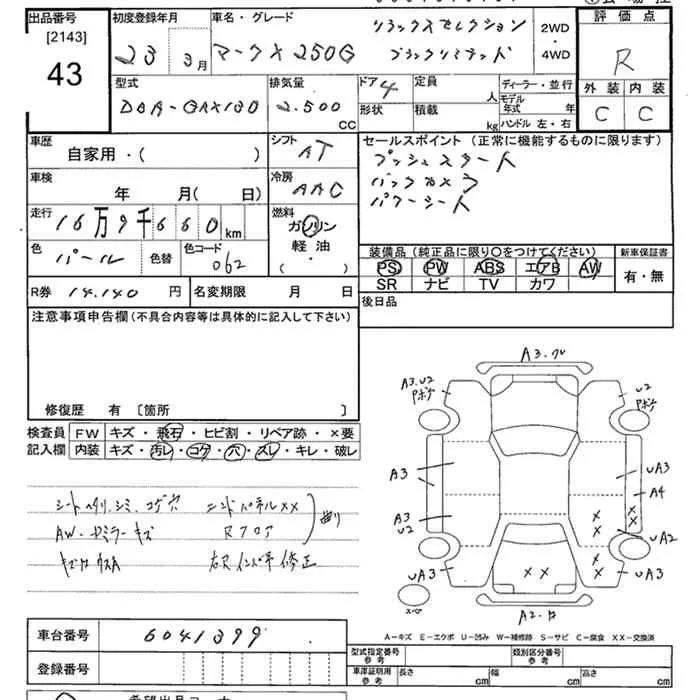 出品番号
[2143]
43
初度登録年月
23 3月
車名・グレード
マークX 250G
リラックスセレクション
ブラックリミテッド
2WD
・
4WD
評価点
R
外装 内装
C C
型式
DBA-GRX130
排気量
2.500
CC
ドア 4
形状
定員
人
積載
kg
ディーラー・並行
モデル年式 年
ハンドル 左・右
車歴
自家用・( )
シフト
AT
セールスポイント (正常に機能するものに限ります)
プッシュスタート
バックカメラ
パワーシート
車検
年 月(日)
冷房
AAC
走行
16万9千660km
燃料
ガソリン
軽油・
( )
色
パール
色替
色コード
062
装備品(純正品に限り○をつけてください)
新車保証書
PS PW ABS エアB AW
SR ナビ TV カワ
有・無
R券 14,140 円
名変期限 月 日
後日品
注意事項申告欄(不具合内容等は具体的に記入して下さい)
修復歴 有 〔箇所 〕
検査員
記入欄
FW キズ・飛石・ヒビ割・リペア跡・×要
内装 キズ・汚レ・コゲ・穴・スレ・キレ・破レ
シートヘタリ、シミ、コゲ穴
AW・ミラーキズ
エンドパネルXX
Rフロア
曲り
右Rインパネ 修正
A3.
A3.U2
Pボケ
U2
Pボケ
A3
UA3
A4
A3
U2
UA2
UA3
UA3
× ×
× ×
× ×
× ×
スペア
A2.
A-キズ E-エクボ U-凹み W-補修跡 S-サビ C-腐食 XX-交換済
車台番号 6041399
登録番号
型式指定番号
参考
類別区分番号
参考
車庫証明用
参考
長さ cm
幅 cm
高さ cm